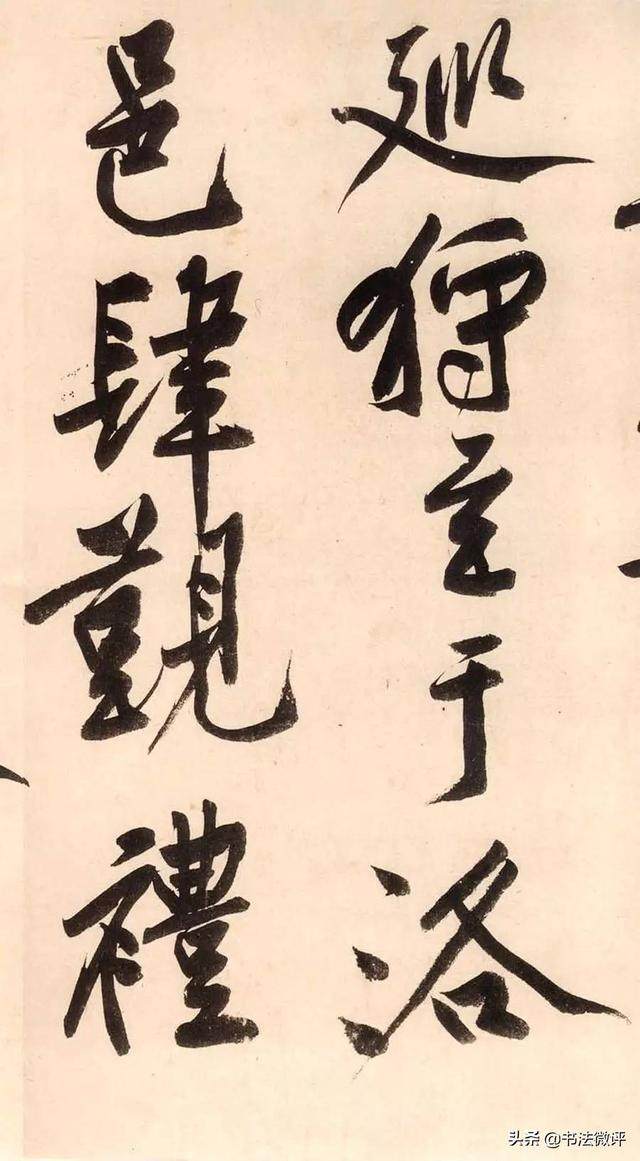 廵狩至于洛
邑肆覲禮
头条 @书法微评